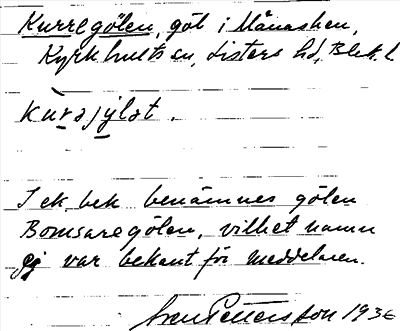 Kurregölen, göl i Månasken,
Kyrkhults sn, Listers hd, Blek. l
kurəjýlət.
I ek. bek benämnes gölen
Bomsaregölen, vilket namn
ej var bekant för meddelaren.
Sven Pettersson 1936